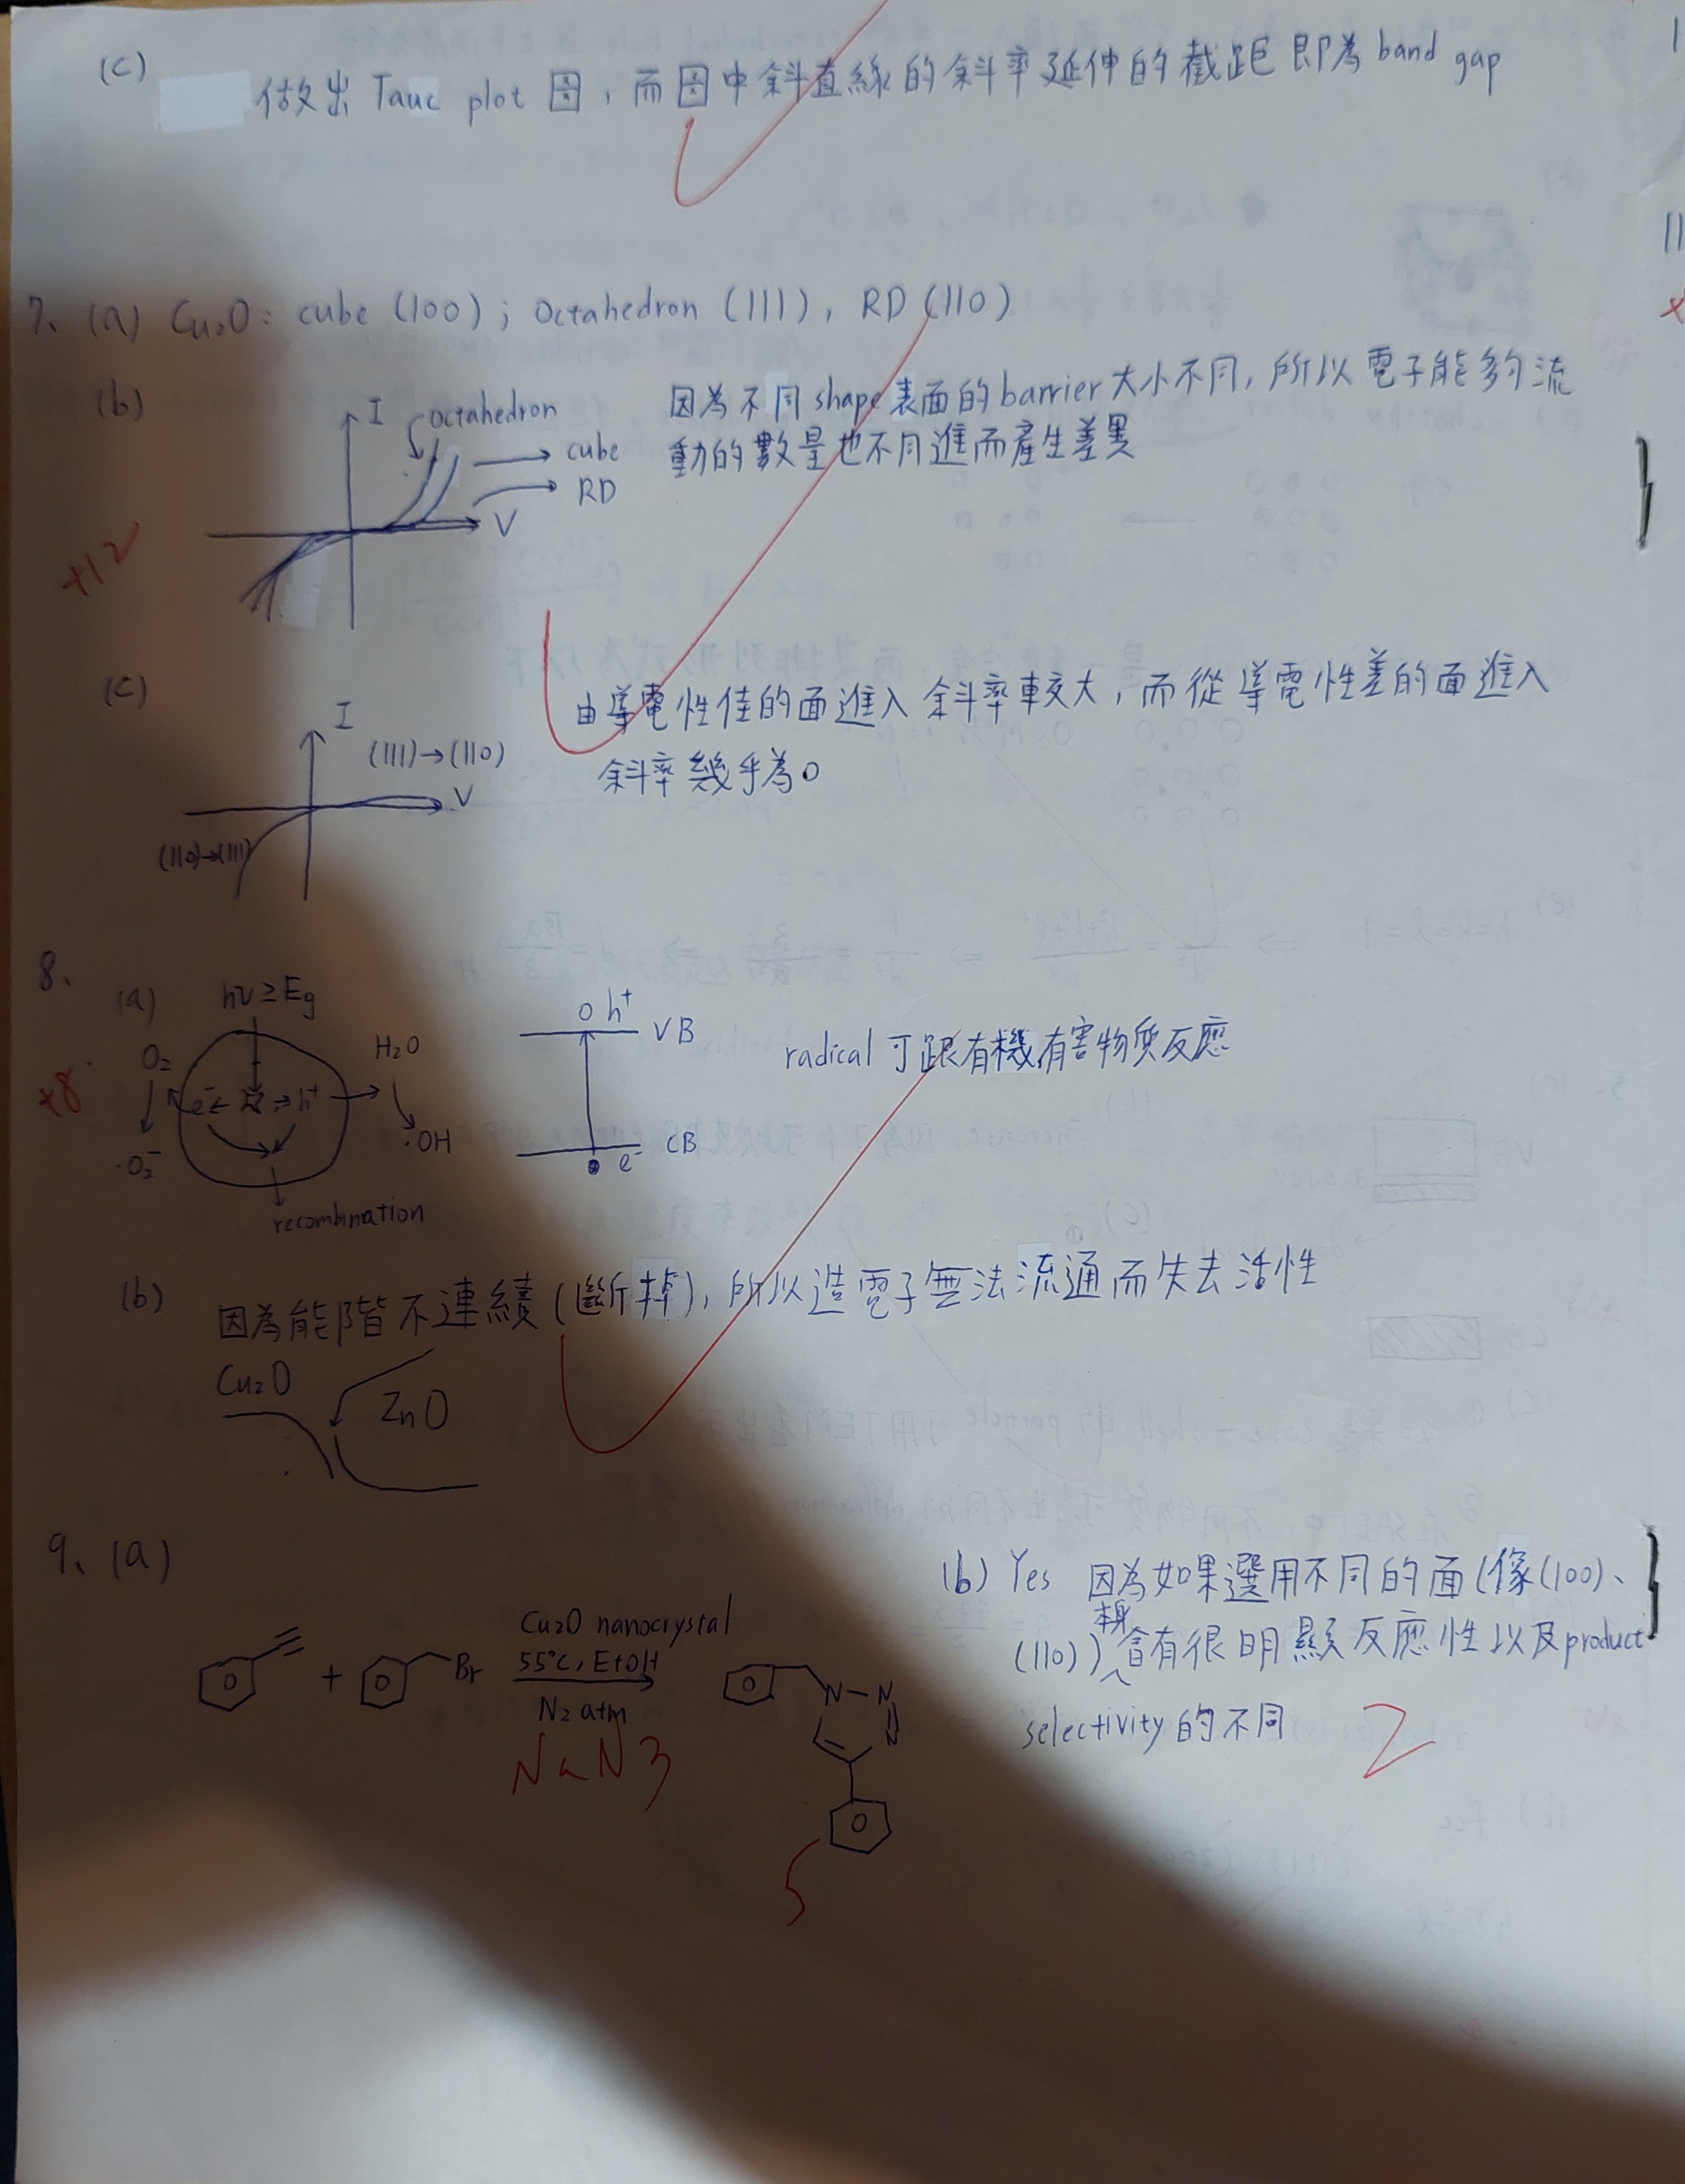 (c)
做出 Tauc plot 圖，而圖中斜直線的斜率延伸的截距即為 band gap
7、(a) Cu₂O: cube (100); Octahedron (111), RD (110)
(b)
I
octahedron
cube
RD
V
因為不同 shape 表面的 barrier 大小不同，所以電子能夠流
動的數量也不同進而產生差異
+12
(c)
I
(111)→(110)
V
(110)→(111)
由導電性佳的面進入斜率較大，而從導電性差的面進入
斜率幾乎為0
8、
(a)
hν ≥ Eg
O₂
e⁻
h⁺
H₂O
·OH
·O₂⁻
recombination
h⁺
VB
CB
e⁻
radical 可跟有機有害物質反應
+8
(b)
因為能階不連續 (斷掉)，所以造電子無法流通而失去活性
Cu₂O
ZnO
9、(a)
+
Br
Cu₂O nanocrystal
55°C, EtOH
N₂ atm
NaN3
N-N
N
5
(b) Yes 因為如果選用不同的面 (像(100)、
本身
(110)) 會有很明顯反應性以及product
selectivity 的不同
2